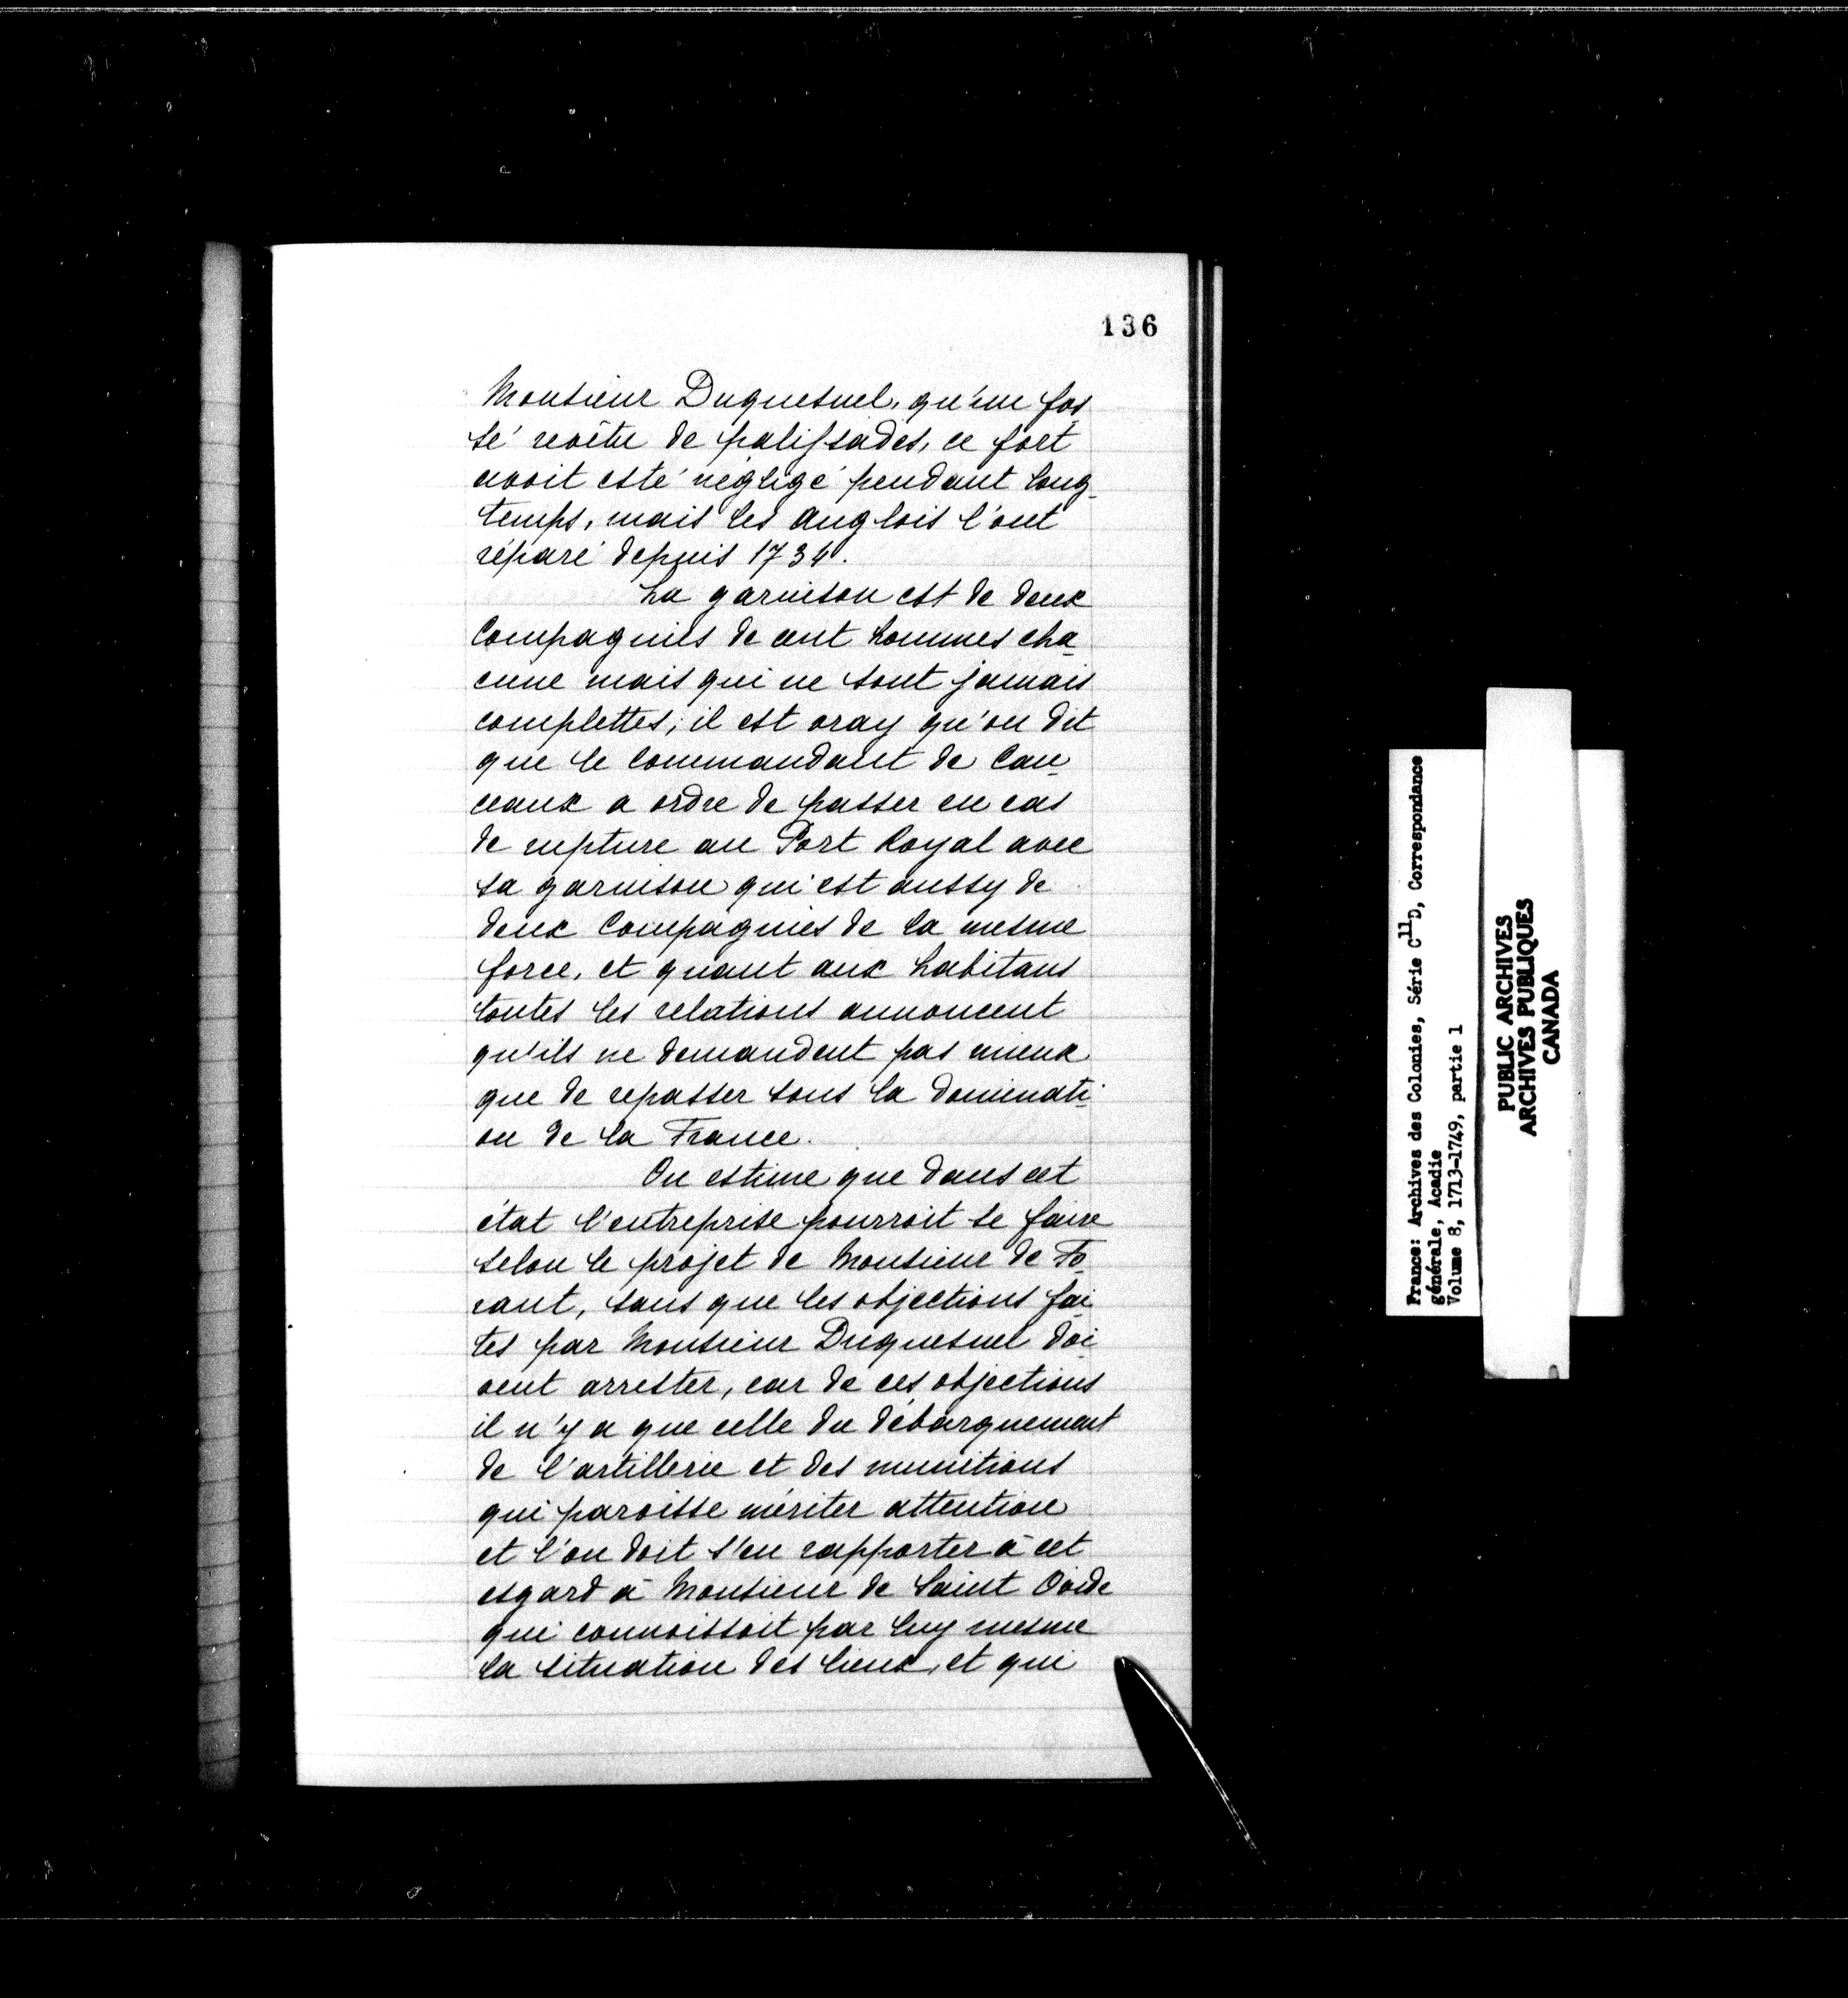 136
Monsieur Duquesnel, qu'un fos
sé revêtu de palissades, ce fort
avoit esté négligé pendant long-
temps, mais les Anglois l'ont
réparé depuis 1734.
La garnison est de deux
Compagnies de cent hommes cha-
cune mais qui ne sont jamais
complettes; il est vray qu'on dit
que le Commandant de Can-
ceaux a ordre de passer en cas
de rupture au Port Royal avec
sa garnison qui est aussy de
deux Compagnies de la mesme
force, et quant aux habitans
toutes les relations annoncent
qu'ils ne demandent pas mieux
que de repasser sous la dominati-
on de la France.
On estime que dans cet
état l'entreprise pourroit se faire
selon le projet de Monsieur de Fo-
rant, sans que les objections fai-
tes par Monsieur Duquesnel doi-
vent arrester, car de ces objections
il n'y a que celle du débarquement
de l'artillerie et des munitions
qui paroisse mériter attention
et l'on doit s'en rapporter à cet
esgard à Monsieur de Saint Ovide
qui connoissoit par luy mesme
la situation des lieux, et qui
France: Archives des Colonies, Série C11D, Correspondance
générale, Acadie
Volume 8, 1713-1749, partie 1
PUBLIC ARCHIVES
ARCHIVES PUBLIQUES
CANADA